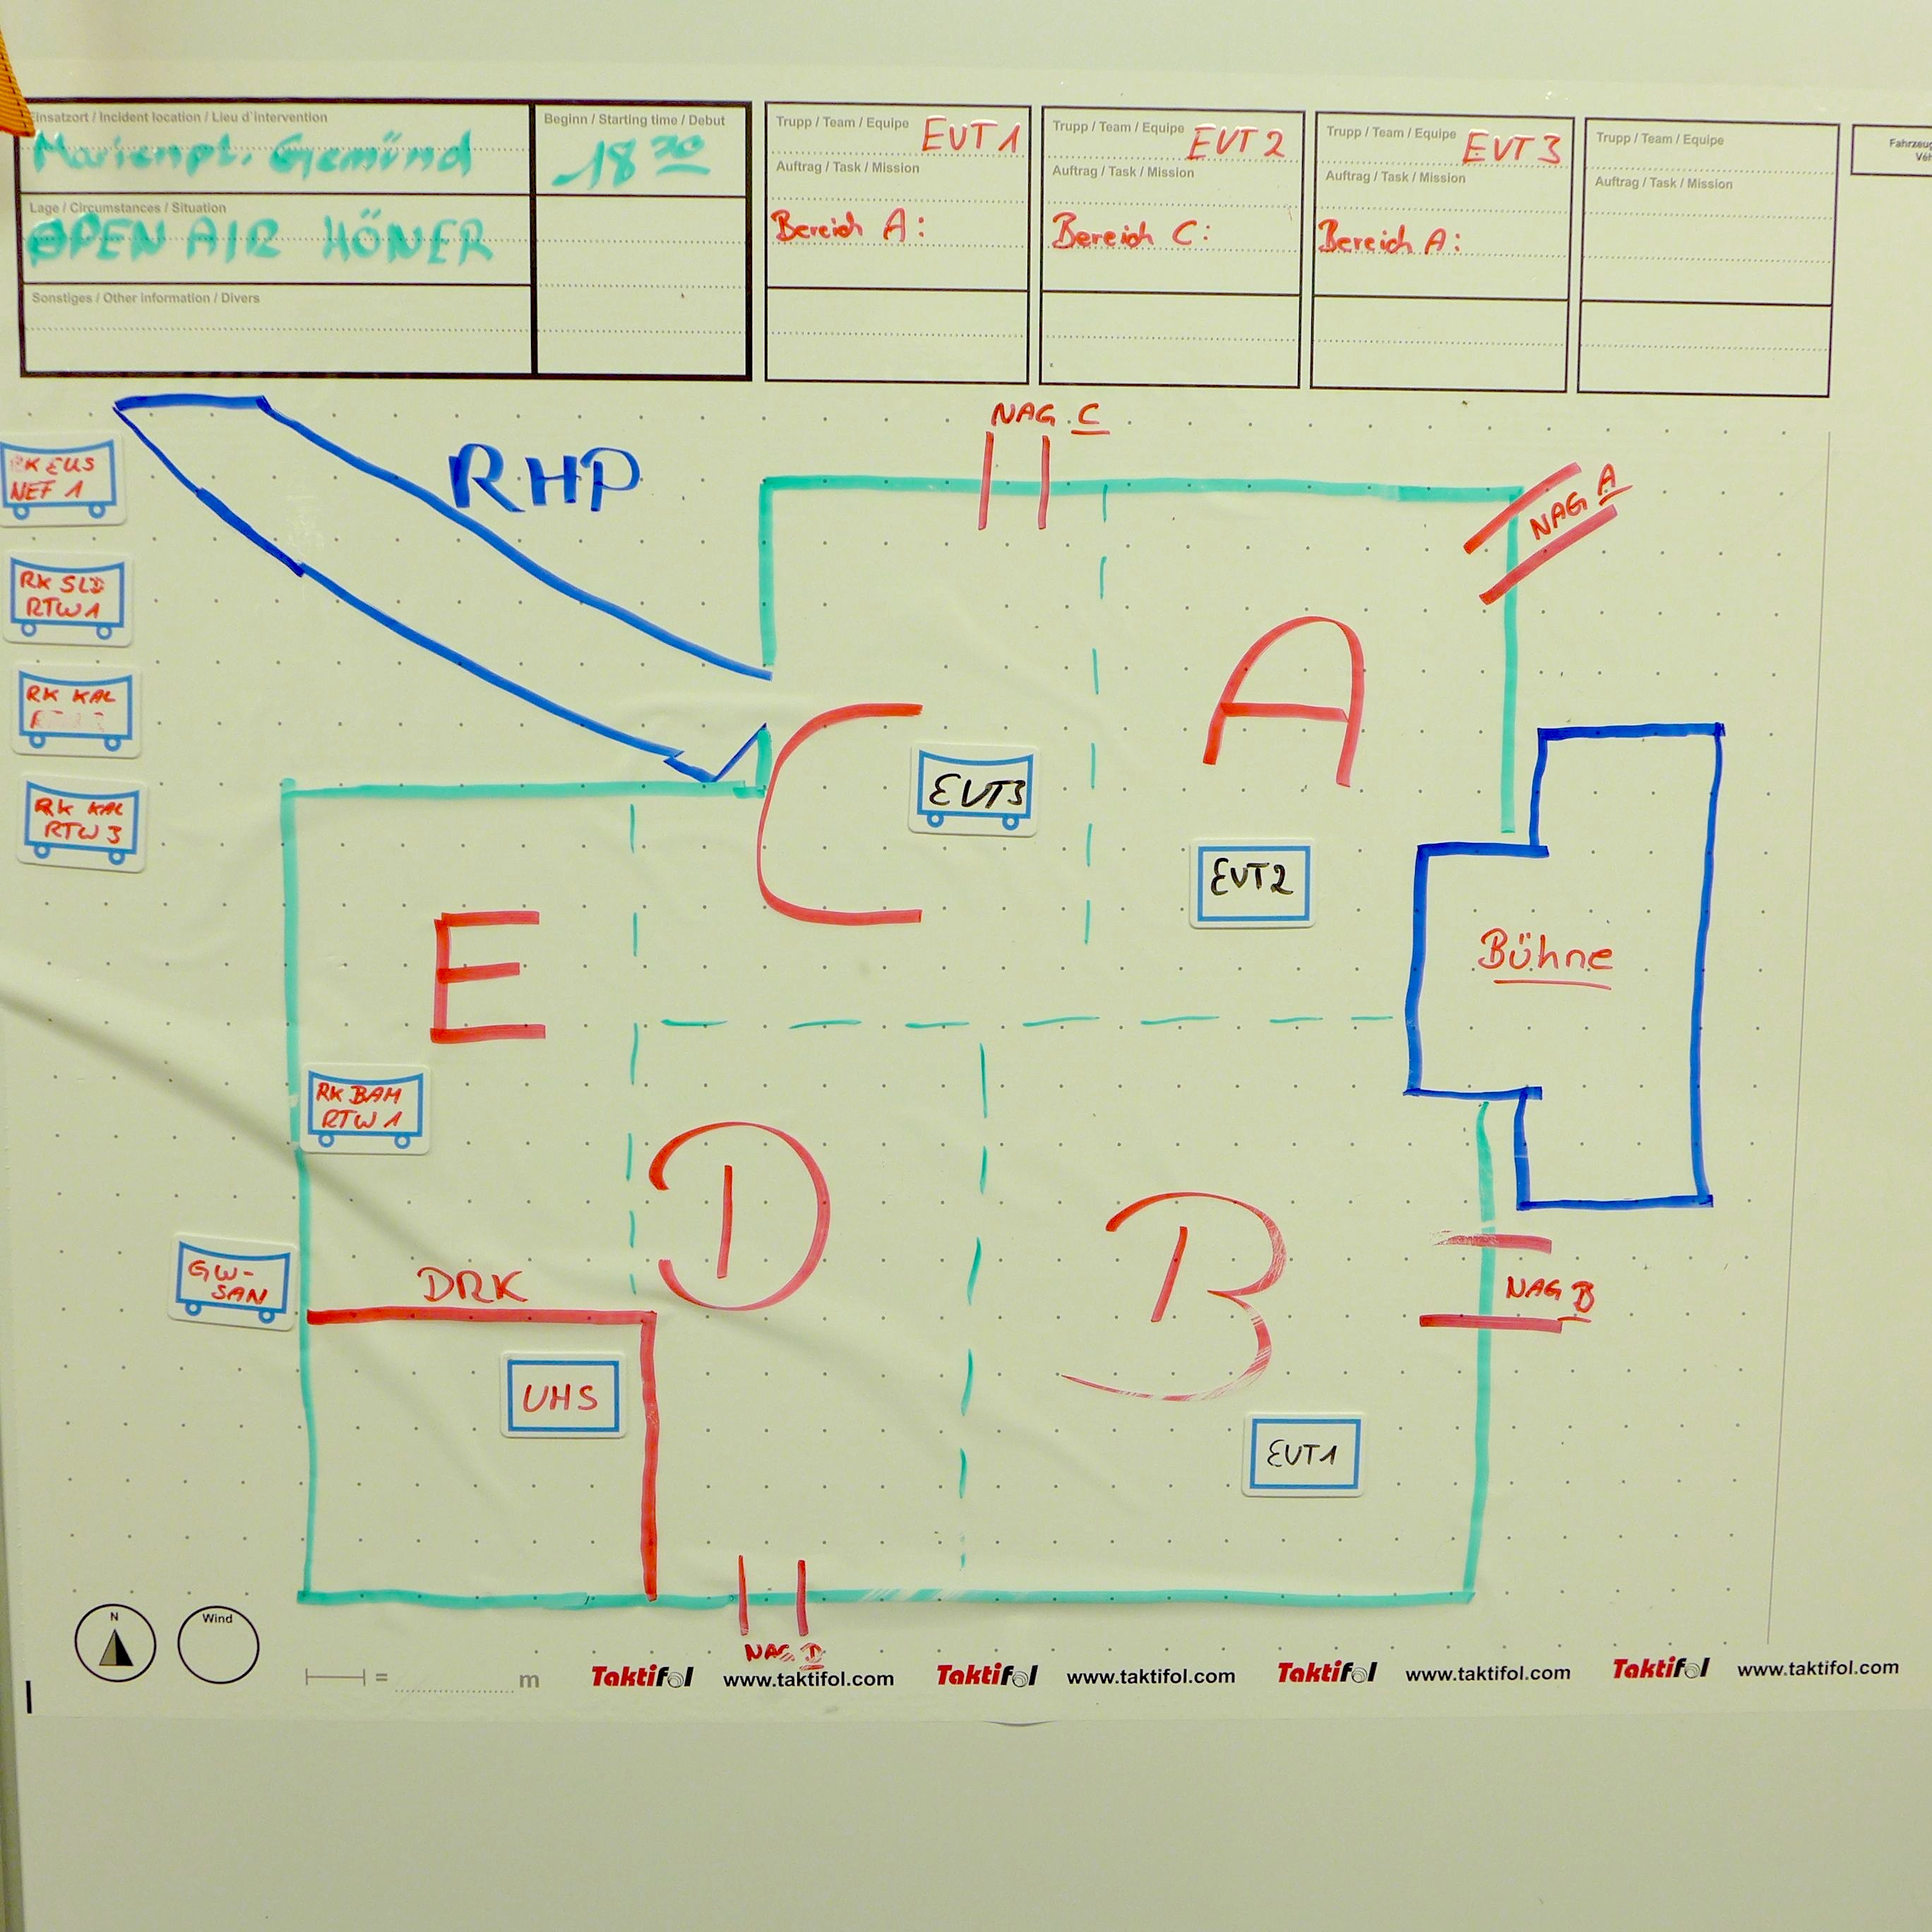 Einsatzort / Incident location / Lieu d'intervention
Marienpl. Gemünd
Beginn / Starting time / Debut
18 30
Lage / Circumstances / Situation
OPEN AIR HÖNER
Sonstiges / Other information / Divers
Trupp / Team / Equipe EVT 1
Auftrag / Task / Mission
Bereich A:
Trupp / Team / Equipe EVT 2
Auftrag / Task / Mission
Bereich C:
Trupp / Team / Equipe EVT 3
Auftrag / Task / Mission
Bereich A:
Trupp / Team / Equipe
Auftrag / Task / Mission
NAG C
RHP
NAG A
RK EUS
NEF 1
RK SLD
RTW 1
RK KAL
RK KAL
RTW 3
A
C
EVT3
EVT2
E
Bühne
RK BAM
RTW 1
D
B
GW-
SAN
DRK
NAG B
UHS
EVT1
NAG D
N
Wind
= m
Taktifol www.taktifol.com Taktifol www.taktifol.com Taktifol www.taktifol.com Taktifol www.taktifol.com